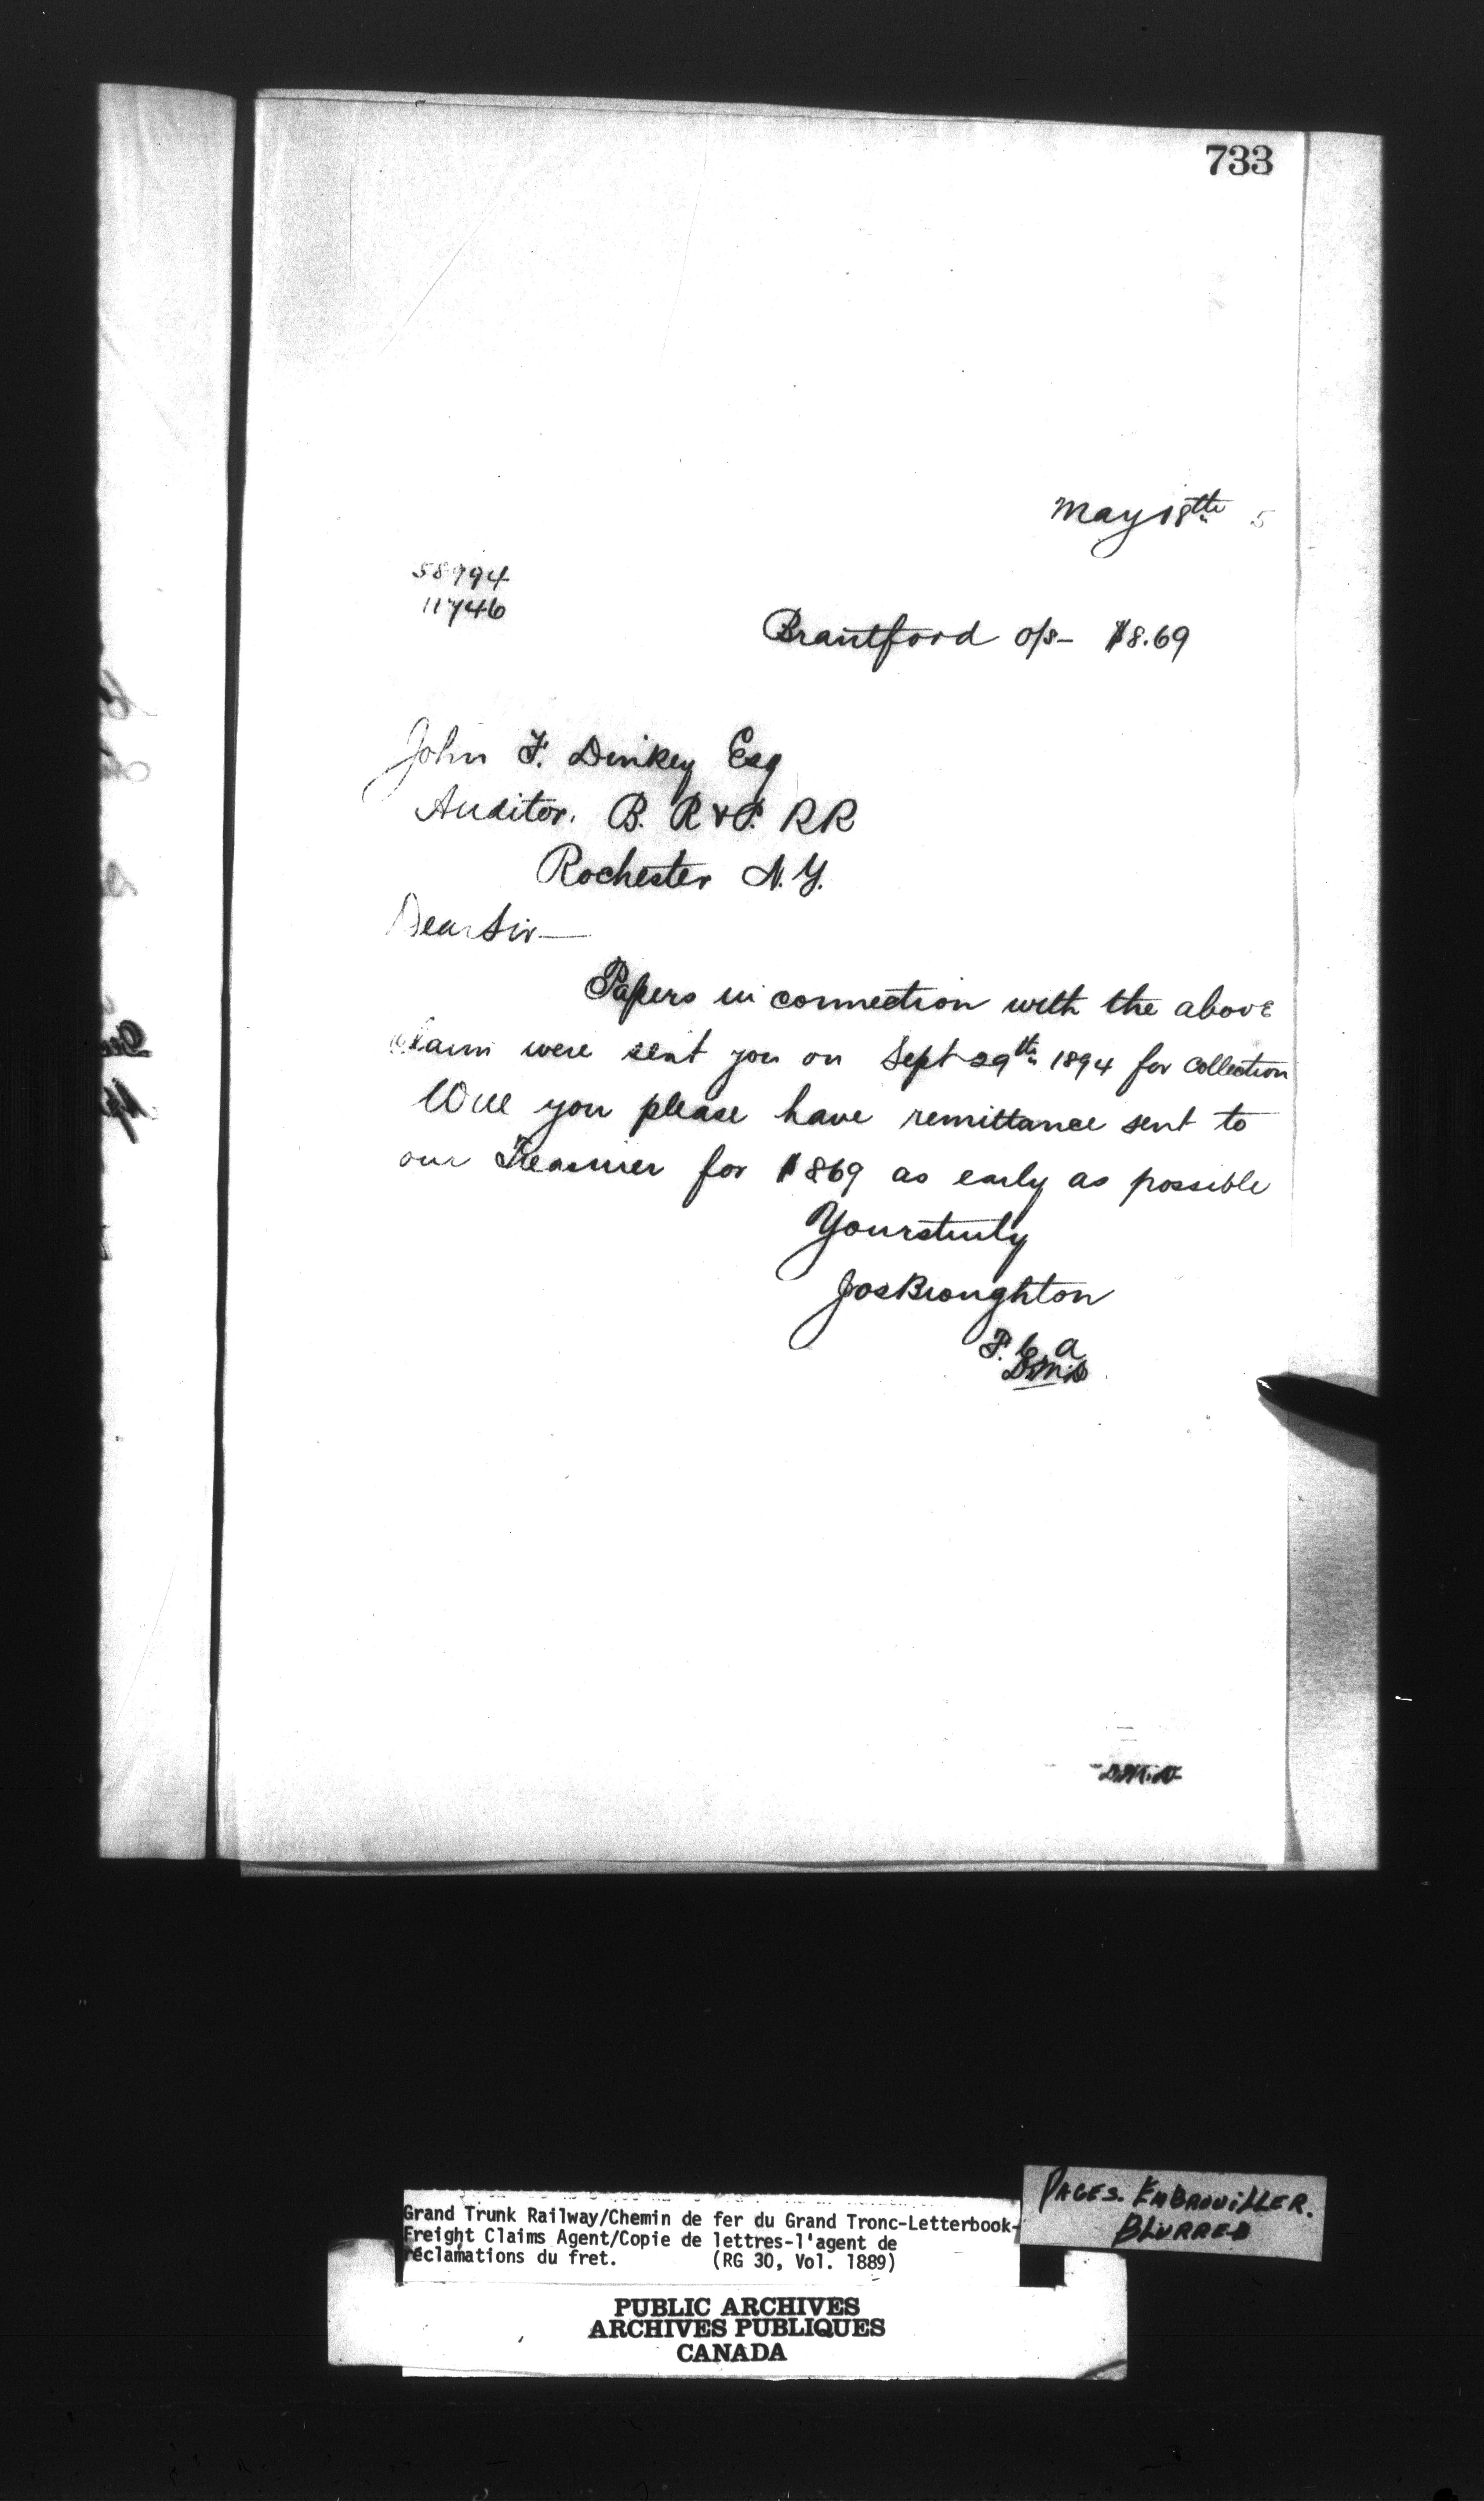 733
May 18th 5
58994
11746
Brantford o/s - $8.69
John F. Dinkey Esq
Auditor. B. R & P. RR
Rochester N.Y.
Dear Sir—
Papers in connection with the above
claim were sent you on Sept 29th 1894 for collection
Will you please have remittance sent to
our Treasurer for $869 as early as possible
Yours truly
Jos Broughton
F. C. A
Grand Trunk Railway/Chemin de fer du Grand Tronc-Letterbook-
Freight Claims Agent/Copie de lettres-l'agent de
réclamations du fret. (RG 30, Vol. 1889)
PAGES. EMBROUILLER.
BLURRED
PUBLIC ARCHIVES
ARCHIVES PUBLIQUES
CANADA